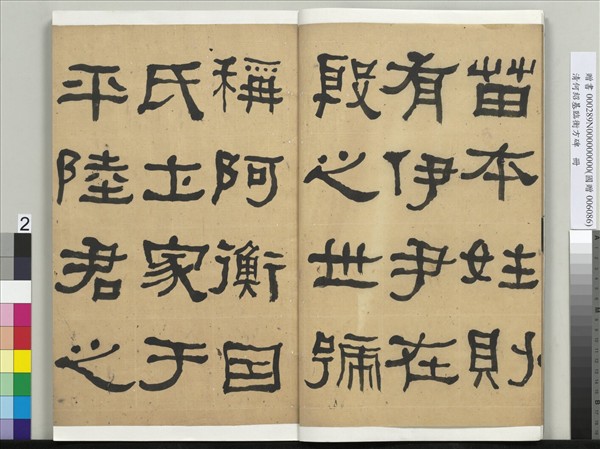 苗本姓則
有伊尹在
殷之世號
稱阿衡因
氏土家于
平陸君之
贈書 000289N000000000(國贈 006086)
清何紹基臨衡方碑 冊
2